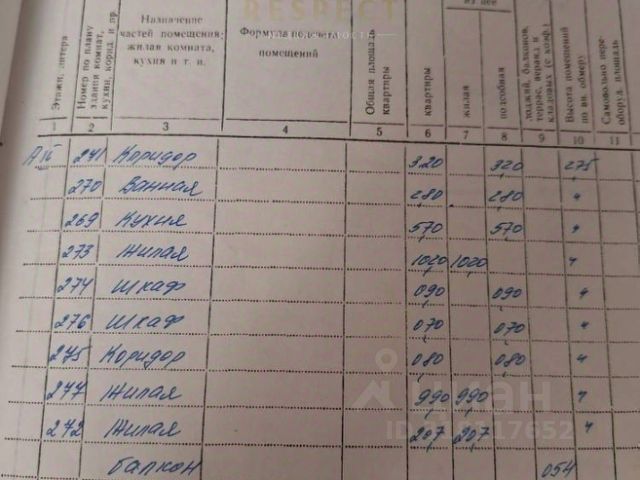 RESPECT
Этажи, литера | Номер по плану здания комнат, кухни, корид. и пр. | Назначение частей помещения: жилая комната, кухня и т. п. | Формула подсчета помещений | Общая площадь квартиры | квартиры | жилая | подсобная | лоджий, балконов, террас, веранд и кладовых (с коэф.) | Высота помещений по вн. обмеру | Самовольно переоборуд. площадь
1 2 3 4 5 6 7 8 9 10 11
241 Коридор 3,20 3,20 2,75
270 Ванная 2,80 2,80 "
269 Кухня 5,70 5,70 "
273 Жилая 10,20 10,20 "
274 Шкаф 0,90 0,90 "
276 Шкаф 0,70 0,70 "
275 Коридор 0,80 0,80 "
277 Жилая 9,90 9,90 "
272 Жилая 20,7 20,7 "
балкон 0,54
циан